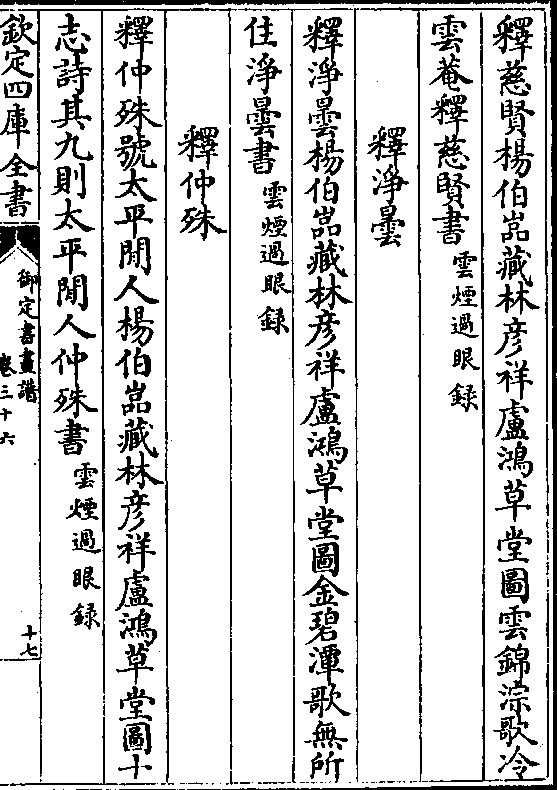 釋慈賢楊伯嵓藏林彦祥盧鴻草堂圖雲錦淙歌冷
雲菴釋慈賢書雲煙過眼録
釋淨曇
釋淨曇楊伯嵓藏林彦祥盧鴻草堂圖金碧潭歌無所
住淨曇書雲煙過眼録
釋仲殊
釋仲殊號太平閒人楊伯嵓藏林彦祥盧鴻草堂圖十
志詩其九則太平閒人仲殊書雲煙過眼録
欽定四庫全書
御定書畫譜
卷三十六
十七